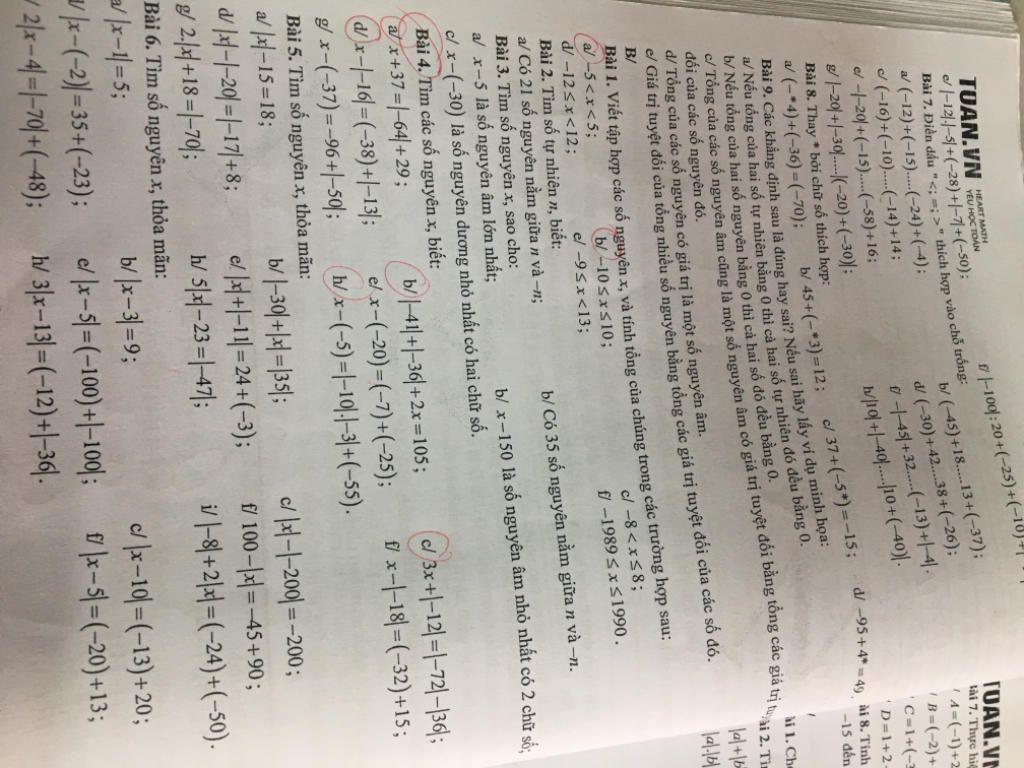 TOAN.VN HEART MATH
YÊU HỌC TOÁN
e/ |-12|.|-5|+(-28)+|-7|+(-50); f/ |-100|:20+(-25)+(-10)+|
Bài 7. Điền dấu "<; =; >" thích hợp vào chỗ trống:
a/ (-12)+(-15).....(-24)+(-4); b/ (-45)+18.....13+(-37);
c/ (-16)+(-10).....(-14)+14; d/ (-30)+42.....38+(-26);
e/ -|-20|+(-15).....(-58)+16; f/ -|-45|+32.....(-13)+|-4|.
g/ |-20|+|-30|.....|(-20)+(-30)|; h/|10|+|-40|.....|10+(-40)|.
Bài 8. Thay * bởi chữ số thích hợp:
a/ (-*4)+(-36)=(-70); b/ 45+(-*3)=12; c/ 37+(-5*)=-15; d/ -95+4*=49.
Bài 9. Các khẳng định sau là đúng hay sai? Nếu sai hãy lấy ví dụ minh họa:
a/ Nếu tổng của hai số tự nhiên bằng 0 thì cả hai số tự nhiên đó đều bằng 0.
b/ Nếu tổng của hai số nguyên bằng 0 thì cả hai số đó đều bằng 0.
c/ Tổng của các số nguyên âm cũng là một số nguyên âm có giá trị tuyệt đối bằng tổng các giá trị
đối của các số nguyên đó.
d/ Tổng của các số nguyên có giá trị là một số nguyên âm.
e/ Giá trị tuyệt đối của tổng nhiều số nguyên bằng tổng các giá trị tuyệt đối của các số đó.
B/
Bài 1. Viết tập hợp các số nguyên x, và tính tổng của chúng trong các trường hợp sau:
a/ -5<x<5; b/ -10≤x≤10; c/ -8<x≤8;
d/ -12≤x<12; e/ -9≤x<13; f/ -1989≤x≤1990.
Bài 2. Tìm số tự nhiên n, biết:
a/ Có 21 số nguyên nằm giữa n và -n; b/ Có 35 số nguyên nằm giữa n và -n.
Bài 3. Tìm số nguyên x, sao cho:
a/ x-5 là số nguyên âm lớn nhất; b/ x-150 là số nguyên âm nhỏ nhất có 2 chữ số;
c/ x-(-30) là số nguyên dương nhỏ nhất có hai chữ số.
Bài 4. Tìm các số nguyên x, biết:
a/ x+37=|-64|+29; b/ |-41|+|-36|+2x=105; c/ 3x+|-12|=|-72|-|36|;
d/ x-|-16|=(-38)+|-13|; e/ x-(-20)=(-7)+(-25); f/ x-|-18|=(-32)+15;
g/ x-(-37)=-96+|-50|; h/ x-(-5)=|-10|.|-3|+(-55).
Bài 5. Tìm số nguyên x, thỏa mãn:
a/ |x|-15=18; b/ |-30|+|x|=|35|; c/ |x|-|-200|=-200;
d/ |x|-|-20|=|-17|+8; e/ |x|+|-11|=24+(-3); f/ 100-|x|=-45+90;
g/ 2.|x|+18=|-70|; h/ 5|x|-23=|-47|; i/ |-8|+2|x|=(-24)+(-50).
Bài 6. Tìm số nguyên x, thỏa mãn:
a/ |x-1|=5; b/ |x-3|=9; c/ |x-10|=(-13)+20;
d/ |x-(-2)|=35+(-23); e/ |x-5|=(-100)+|-100|; f/ |x-5|=(-20)+13;
2|x-4|=|-70|+(-48); h/ 3|x-13|=(-12)+|-36|.
TOAN.VN
Bài 7. Thực hiệ
A=(-1)+2
B=(-2)+
C=1+(-3
D=1+2
Bài 8. Tính
-15 đến
Bài 1. Ch
|a|+|b|
Bài 2. Tì
|a|.|b|